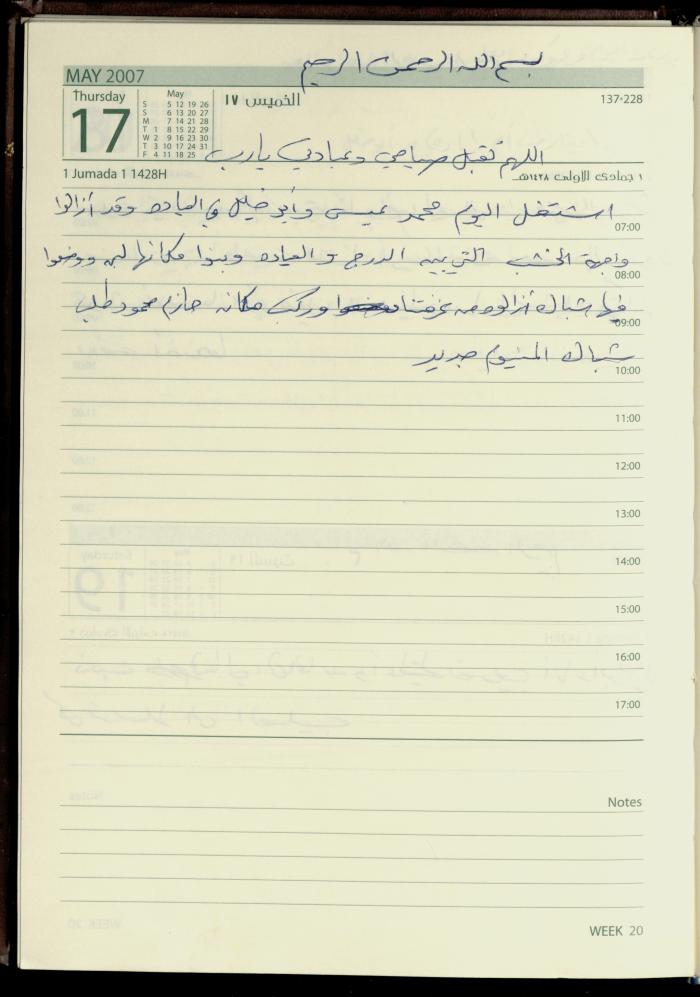 بسم الله الرحمن الرحيم
MAY 2007
Thursday
17
May
S 5 12 19 26
S 6 13 20 27
M 7 14 21 28
T 1 8 15 22 29
W 2 9 16 23 30
T 3 10 17 24 31
F 4 11 18 25
الخميس ١٧
137-228
اللهم تقبل صيامي وعبادتي يارب
1 Jumada 1 1428H
١ جمادى الاولى ١٤٢٨هـ
اشتغل اليوم محمد عيسى وأبو خليل في العياده وقد أزالوا
07:00
واجهة الخشب التي بين الدرج و العياده وبنوا مكانها لبن ووضعوا
08:00
فيها شباك أزالوه من غرفتنا وركب مكانه حازم محمود طلب
09:00
شباك المنيوم جديد
10:00
11:00
12:00
13:00
14:00
15:00
16:00
17:00
Notes
WEEK 20